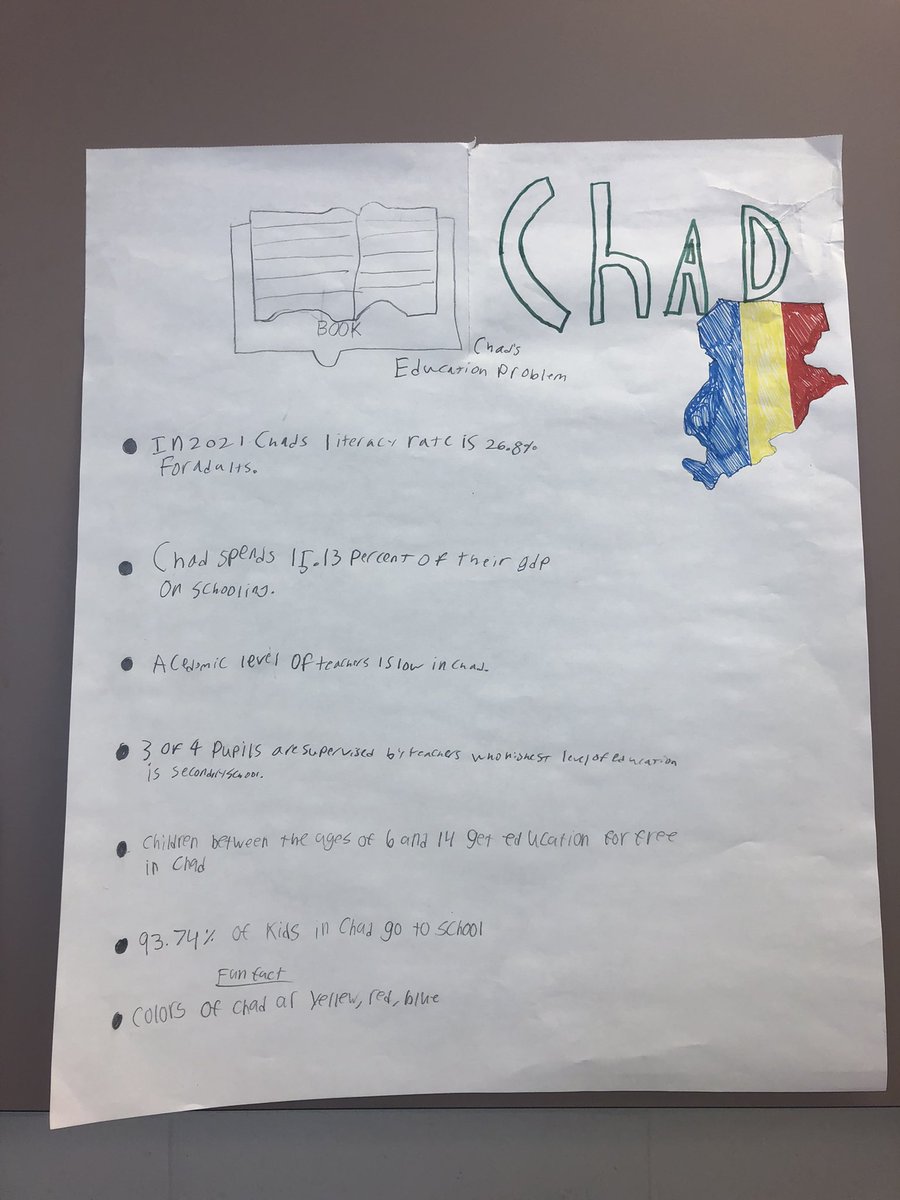 ChAD
BOOK
Chad's
Education Problem
In 2021 Chads literacy rate is 26.8%
For adults.
Chad spends 15.13 Percent of their gdp
On schooling.
Acedmic level of teachers is low in Chad.
3 of 4 Pupils are supervised by teachers who highest level of education
is secondary school.
Children between the ages of 6 and 14 get education for free
in Chad
93.74% of kids in Chad go to school
Fun fact
colors of Chad ar yellew, red, blue